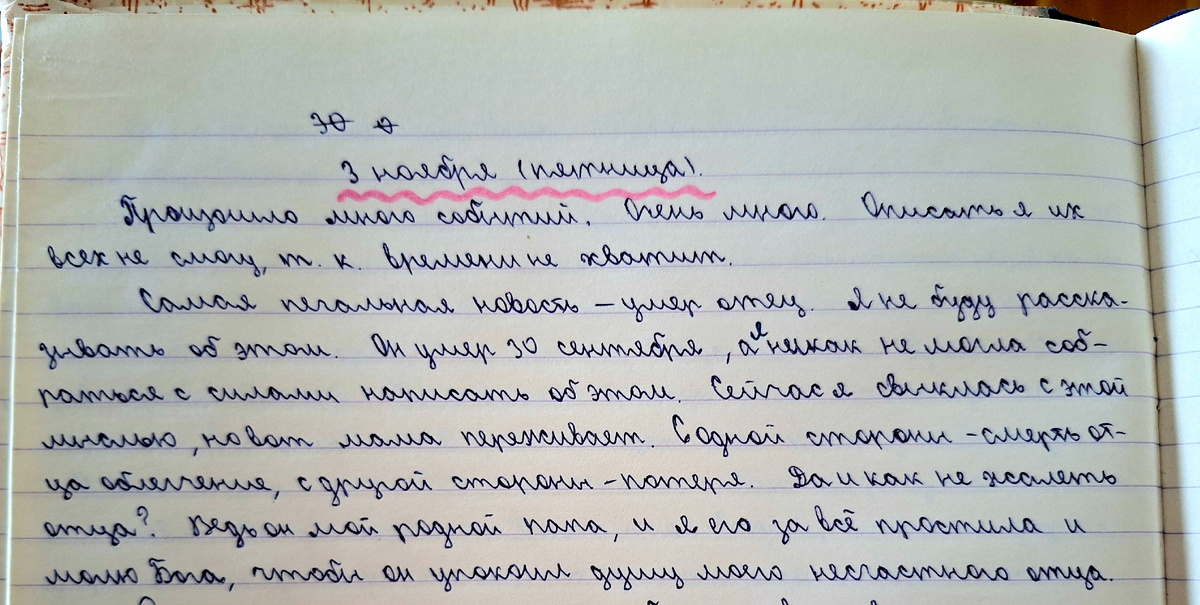 30
3 ноября (пятница).
Произошло много событий. Очень много. Описать я их
всех не смогу, т. к. времени не хватит.
Самая печальная новость – умер отец. Я не буду расска-
зывать об этом. Он умер 30 сентября, а я никак не могла соб-
раться с силами написать об этом. Сейчас я свыклась с этой
мыслью, но вот мама переживает. С одной стороны - смерть от-
ца облегчение, с другой стороны - потеря. Да и как не жалеть
отца? Ведь он мой родной папа, и я его за всё простила и
молю Бога, чтобы он упокоил душу моего несчастного отца.